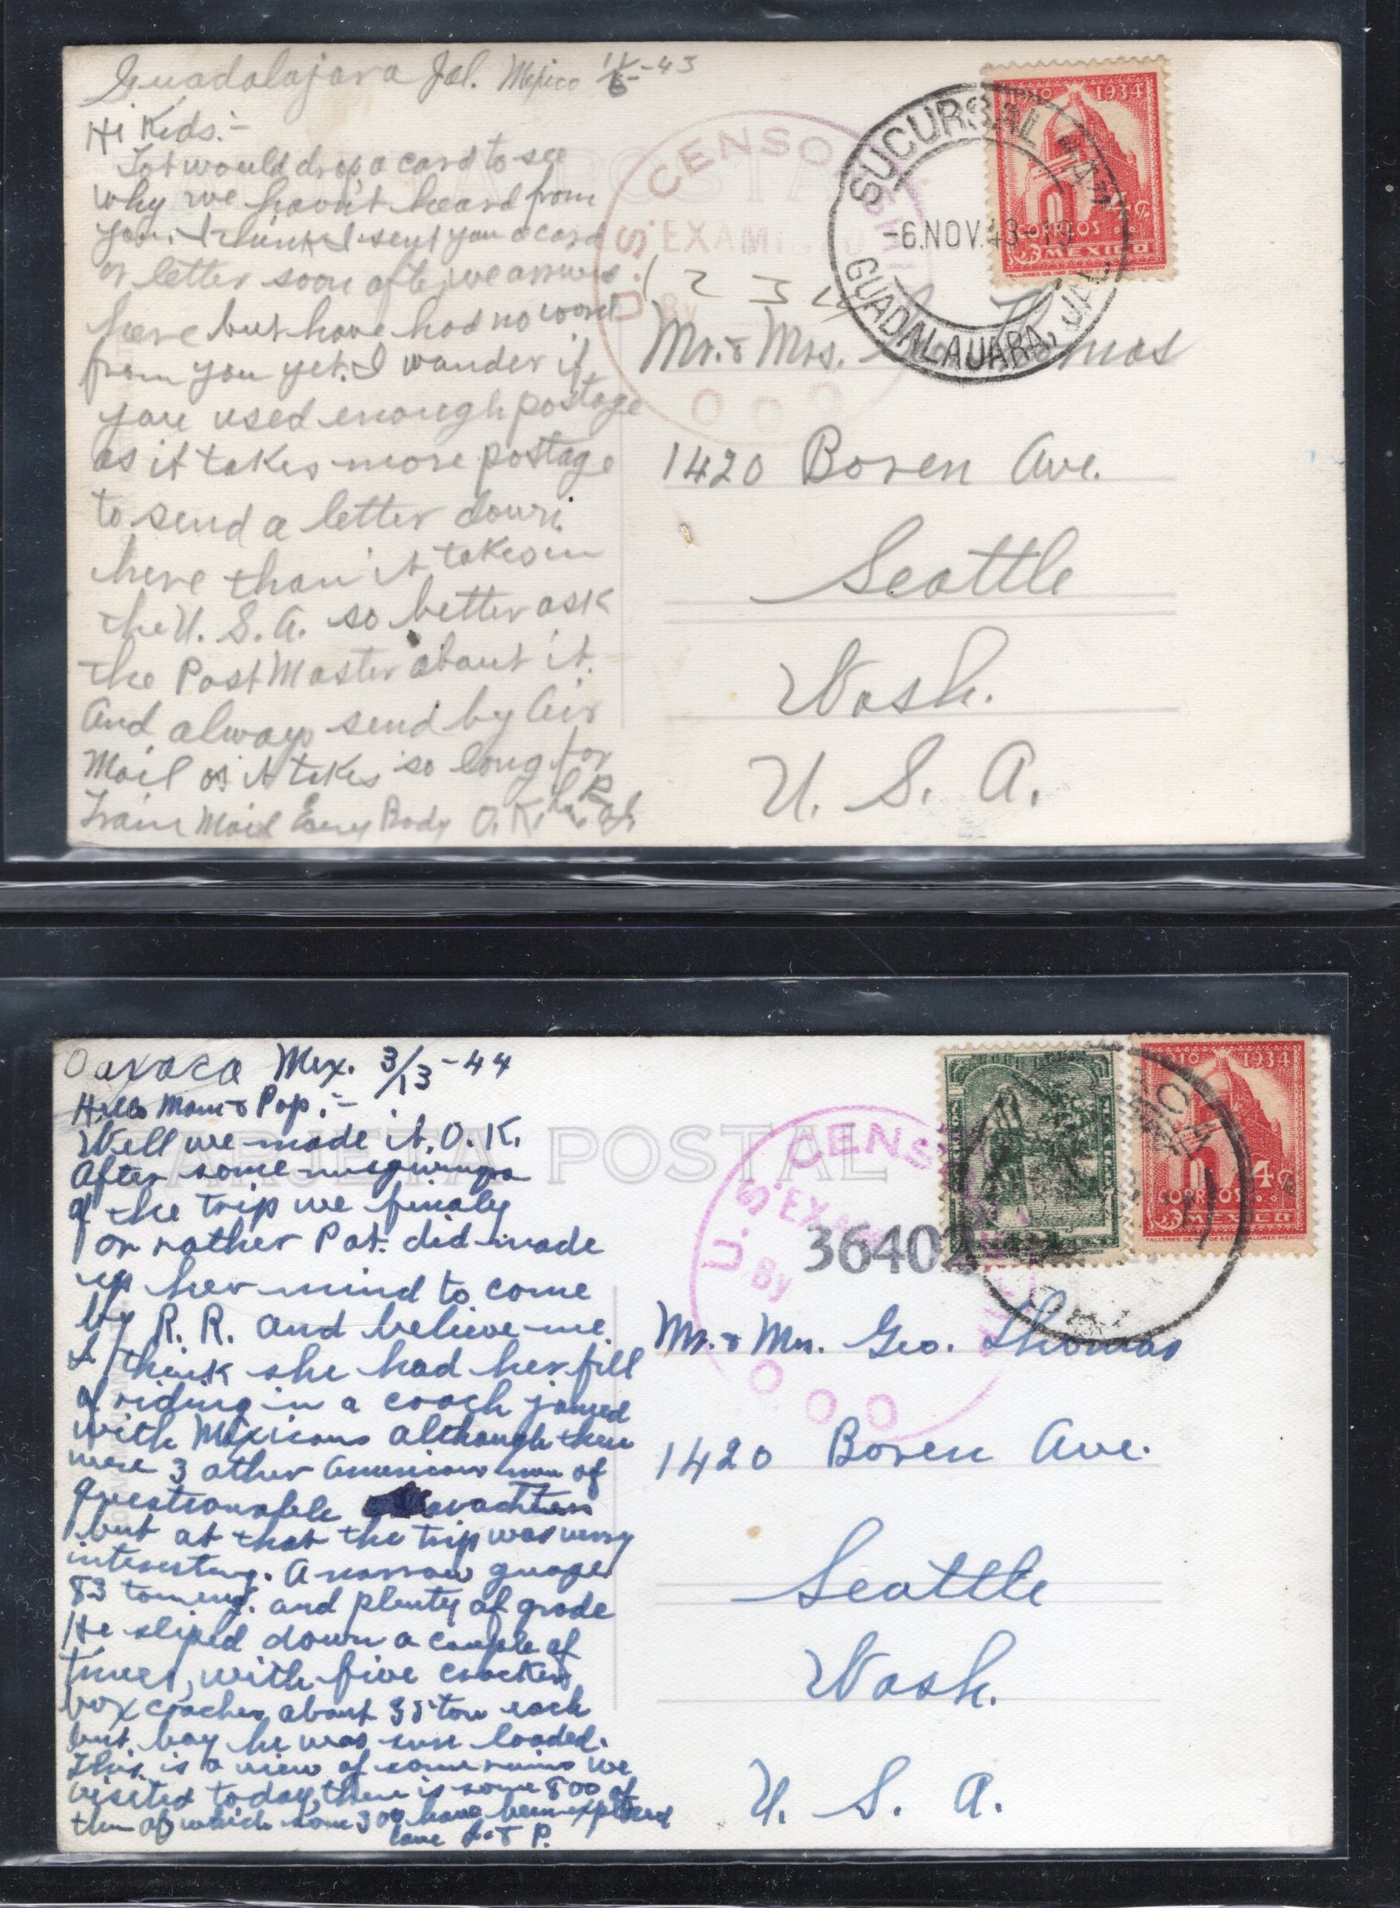 Guadalajara Jal. Mexico 11/6-43
Hi Kids:-
Tot would drop a card to see
why we havn't heard from
you. I think I sent you a card
or letter soon after we arrived
here but have had no word
from you yet. I wander if
you used enough postage
as it takes more postage
to send a letter down
here than it takes in
the U. S. A. so better ask
the Post Master about it.
And always send by Air
Mail as it takes so long for
Train Mail Every Body O.K.
CORREOS
MEXICO
1934
SUCURSAL "A"
-6.NOV.43-19
GUADALAJARA, JAL.
U.S. CENSO
EXAMINED
By
1 2 3 4
Mr. & Mrs. Thomas
1420 Boren Ave.
Seattle
Wash.
U. S. A.
Oaxaca Mex. 3/13-44
Hello Mom & Pop:-
Well we made it, O. K.
After some misgivings
of the trip we finaly
or rather Pat. did made
up her mind to come
by R. R. and believe me
I think she had her fill
of riding in a coach jamed
with Mexicans although there
were 3 other American men of
questionable
but at that the trip was very
interesting. A narrow guage
83 ton eng. and plenty of grade
He sliped down a couple of
times, with five cracker
box coaches about 35 ton each
but boy he was sure loaded.
This is a view of some ruins we
visited today, there is some 800 of
them of which some 300 have been explored
Love & P.
TARJETA POSTAL
1910 1934
4¢
CORREOS
MEXICO
U.S. CENS
EXAM
By
36402
Mr. & Mrs. Geo. Thomas
1420 Boren Ave.
Seattle
Wash.
U. S. A.